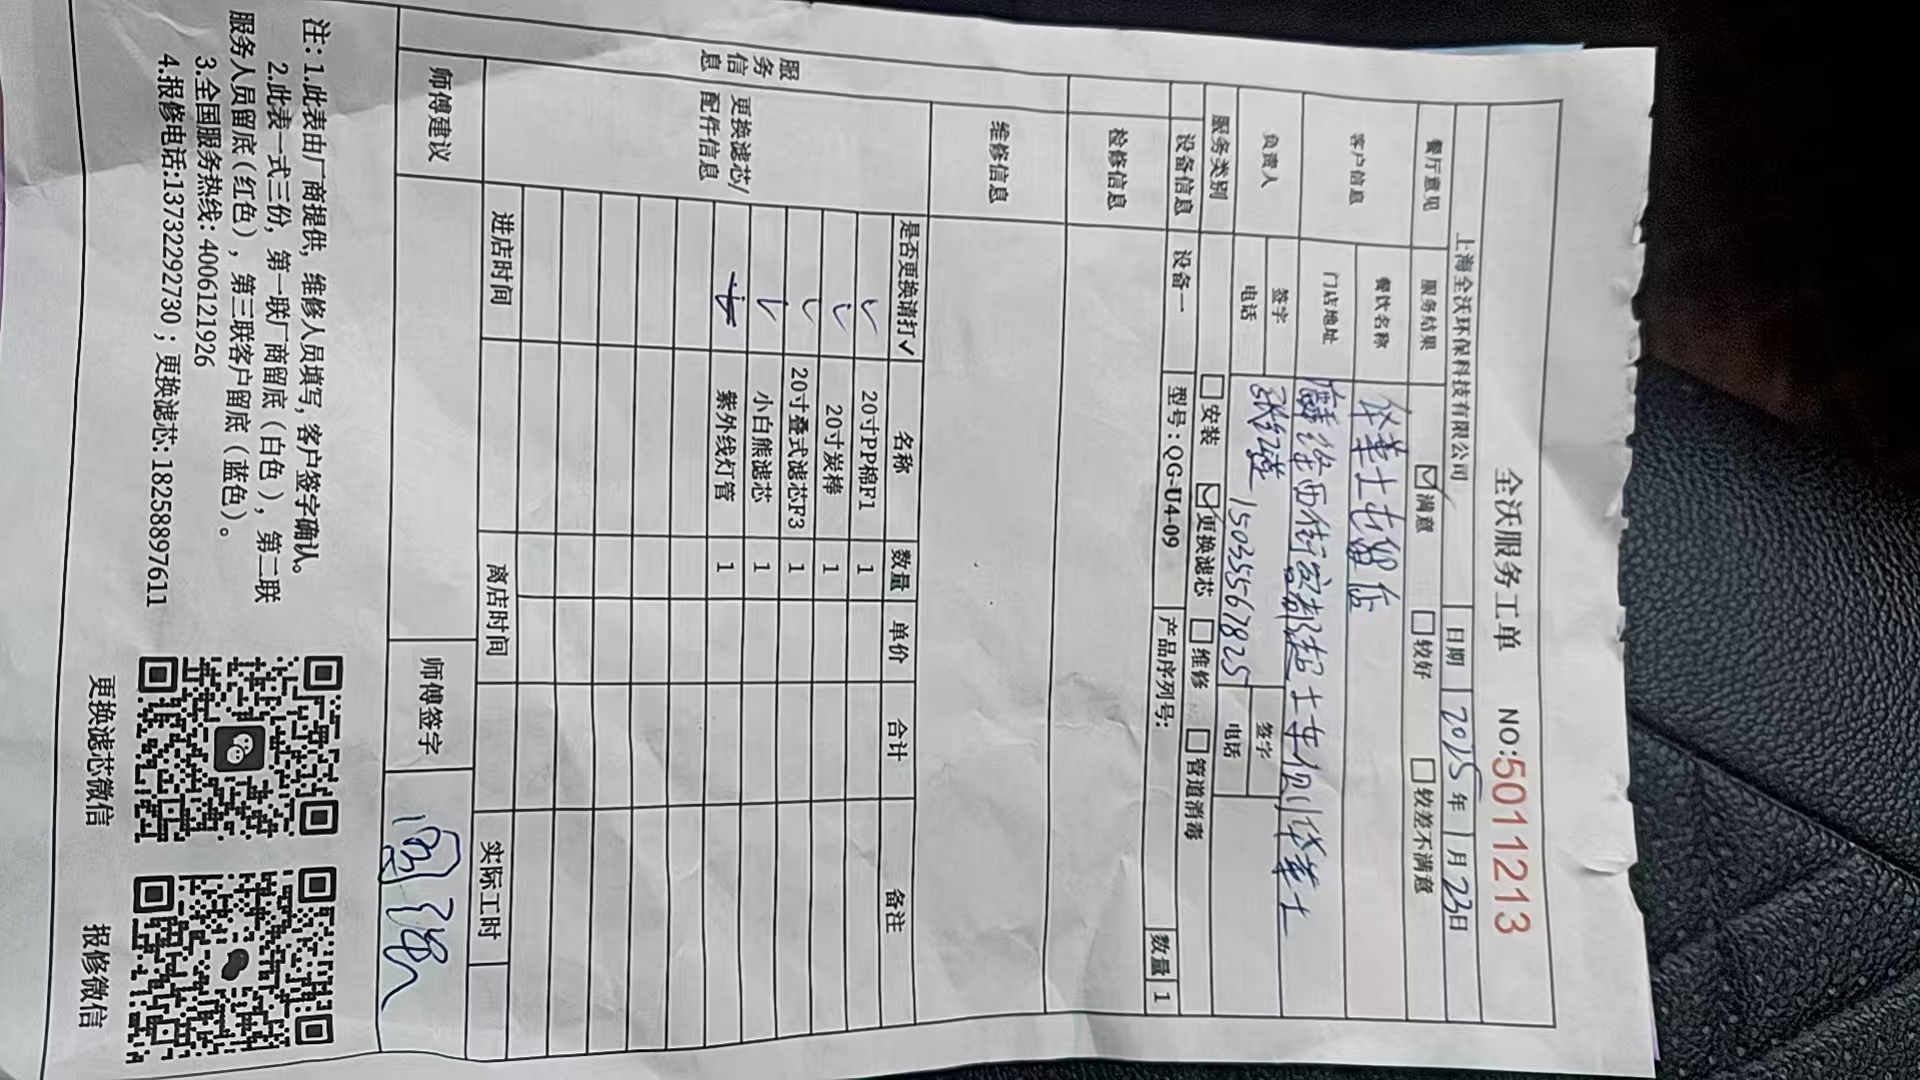 全沃服务工单 NO:5011213
上海全沃环保科技有限公司 日期 2025年1月23日
餐厅意见 服务结果 ☑满意 □较好 □较差不满意
客户信息 餐饮名称 华莱士屯留店
门店地址 西街 超士 华莱士
负责人 签字 张 签字
电话 15035567825 电话
服务类别 □安装 ☑更换滤芯 □维修 □管道消毒
设备信息 设备一 型号:QG-U4-09 产品序列号: 数量 1
检修信息
维修信息
服务信息
更换滤芯/配件信息
是否更换请打✓ 名称 数量 单价 合计 备注
✓ 20寸PP棉F1 1
✓ 20寸炭棒 1
✓ 20寸叠式滤芯F3 1
✓ 小白熊滤芯 1
紫外线灯管 1
进店时间 离店时间 实际工时
师傅建议 师傅签字
注: 1.此表由厂商提供, 维修人员填写, 客户签字确认。
2.此表一式三份, 第一联厂商留底(白色), 第二联
服务人员留底(红色), 第三联客户留底(蓝色)。
3.全国服务热线: 4006121926
4.报修电话:13732292730; 更换滤芯: 18258897611
更换滤芯微信 报修微信